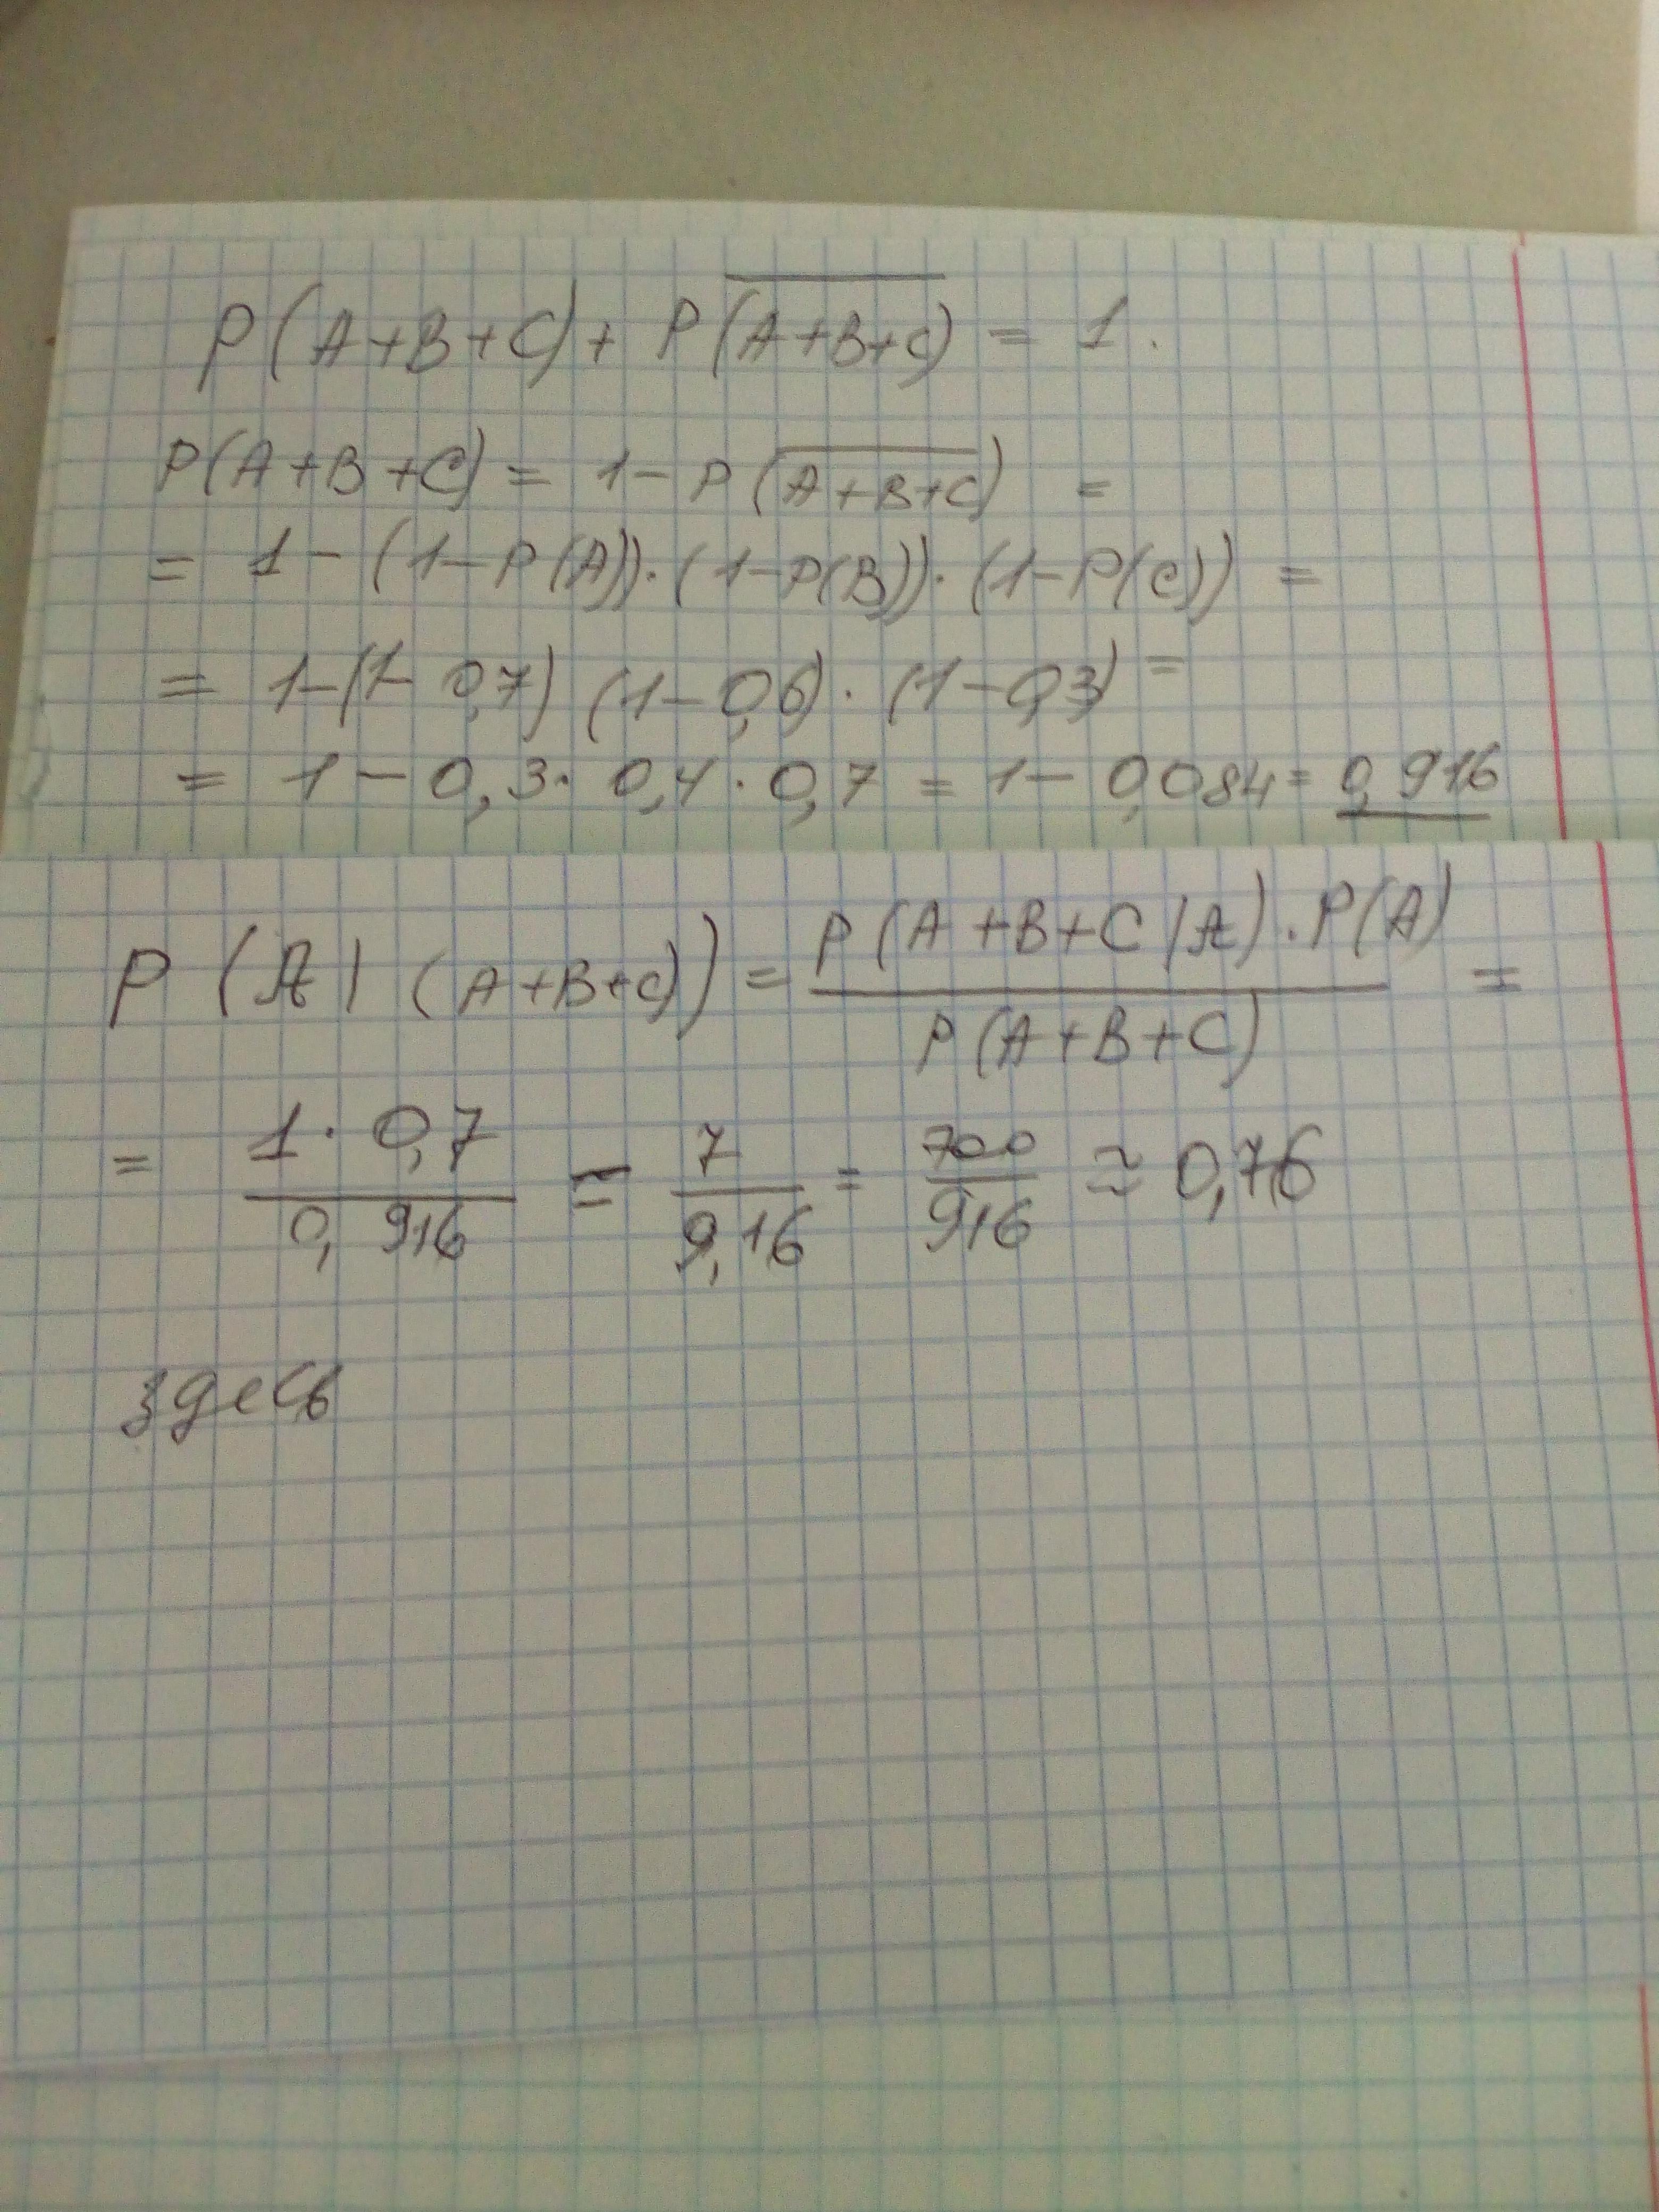 P(A+B+C) + P(\overline{A+B+C}) = 1.
P(A+B+C) = 1 - P(\overline{A+B+C}) =
= 1 - (1-P(A))·(1-P(B))·(1-P(C)) =
= 1-(1-0,7) (1-0,6)·(1-0,3) =
= 1 - 0,3·0,4·0,7 = 1 - 0,084 = 0,916
P(A|(A+B+C)) = \frac{P(A+B+C|A)·P(A)}{P(A+B+C)} =
= \frac{1·0,7}{0,916} = \frac{7}{9,16} = \frac{700}{916} ≈ 0,76
здесь